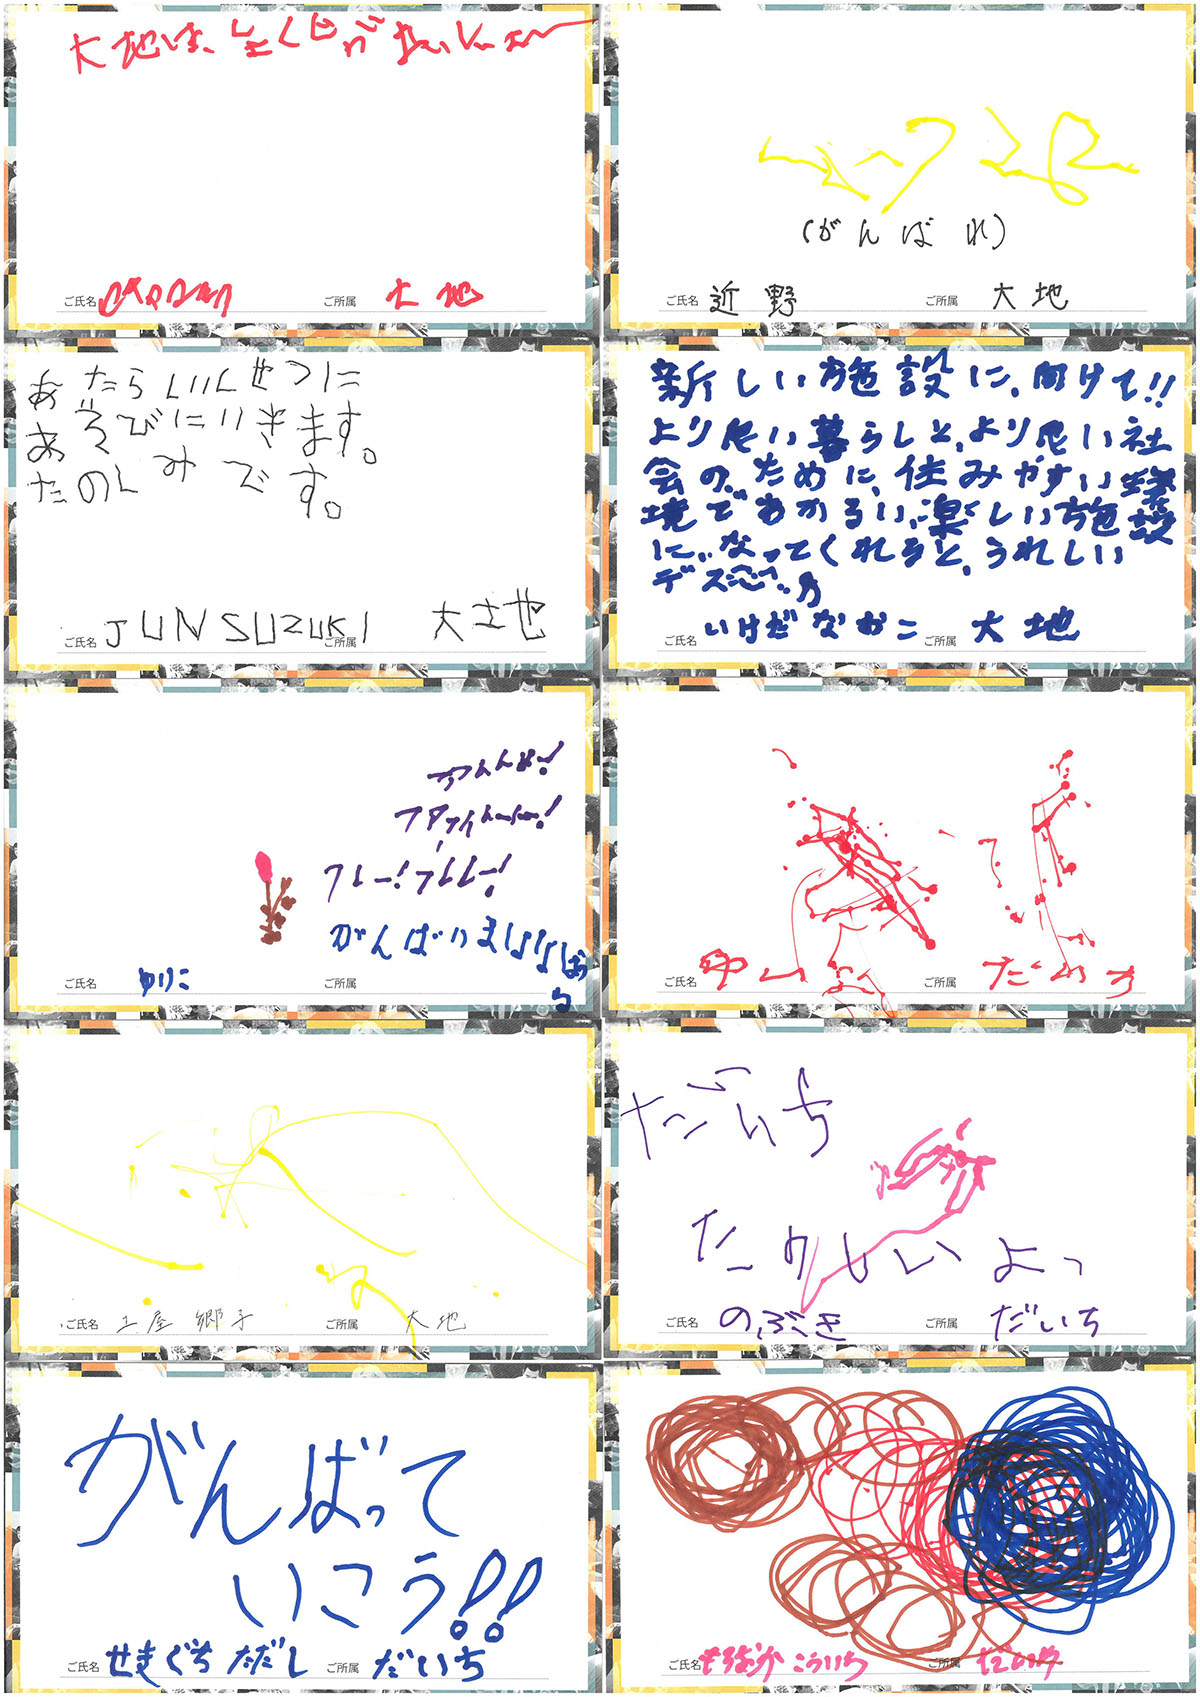 大地は、
ご氏名
ご所属 大地
(がんばれ)
ご氏名 近野
ご所属 大地
あたらしいしせつに
あそびにいきます。
たのしみです。
ご氏名 JUNSUZUKI
ご所属 大地
新しい施設に、向けて!!
より良い暮らしと、より良い社
会の、ために、住みやすい環
境であかるい、楽しい施設
に、なってくれると、うれしい
デス
ご氏名 いけだなおこ
ご所属 大地
フレー!フレレー!
ご氏名 ゆりこ
ご所属
ご氏名
ご所属 だいち
ご氏名 土屋 郷子
ご所属 大地
だいち
たのしいよっ
ご氏名 のぶき
ご所属 だいち
がんばって
いこう!!
ご氏名 せきぐち ただし
ご所属 だいち
ご氏名 こういち
ご所属 だいち